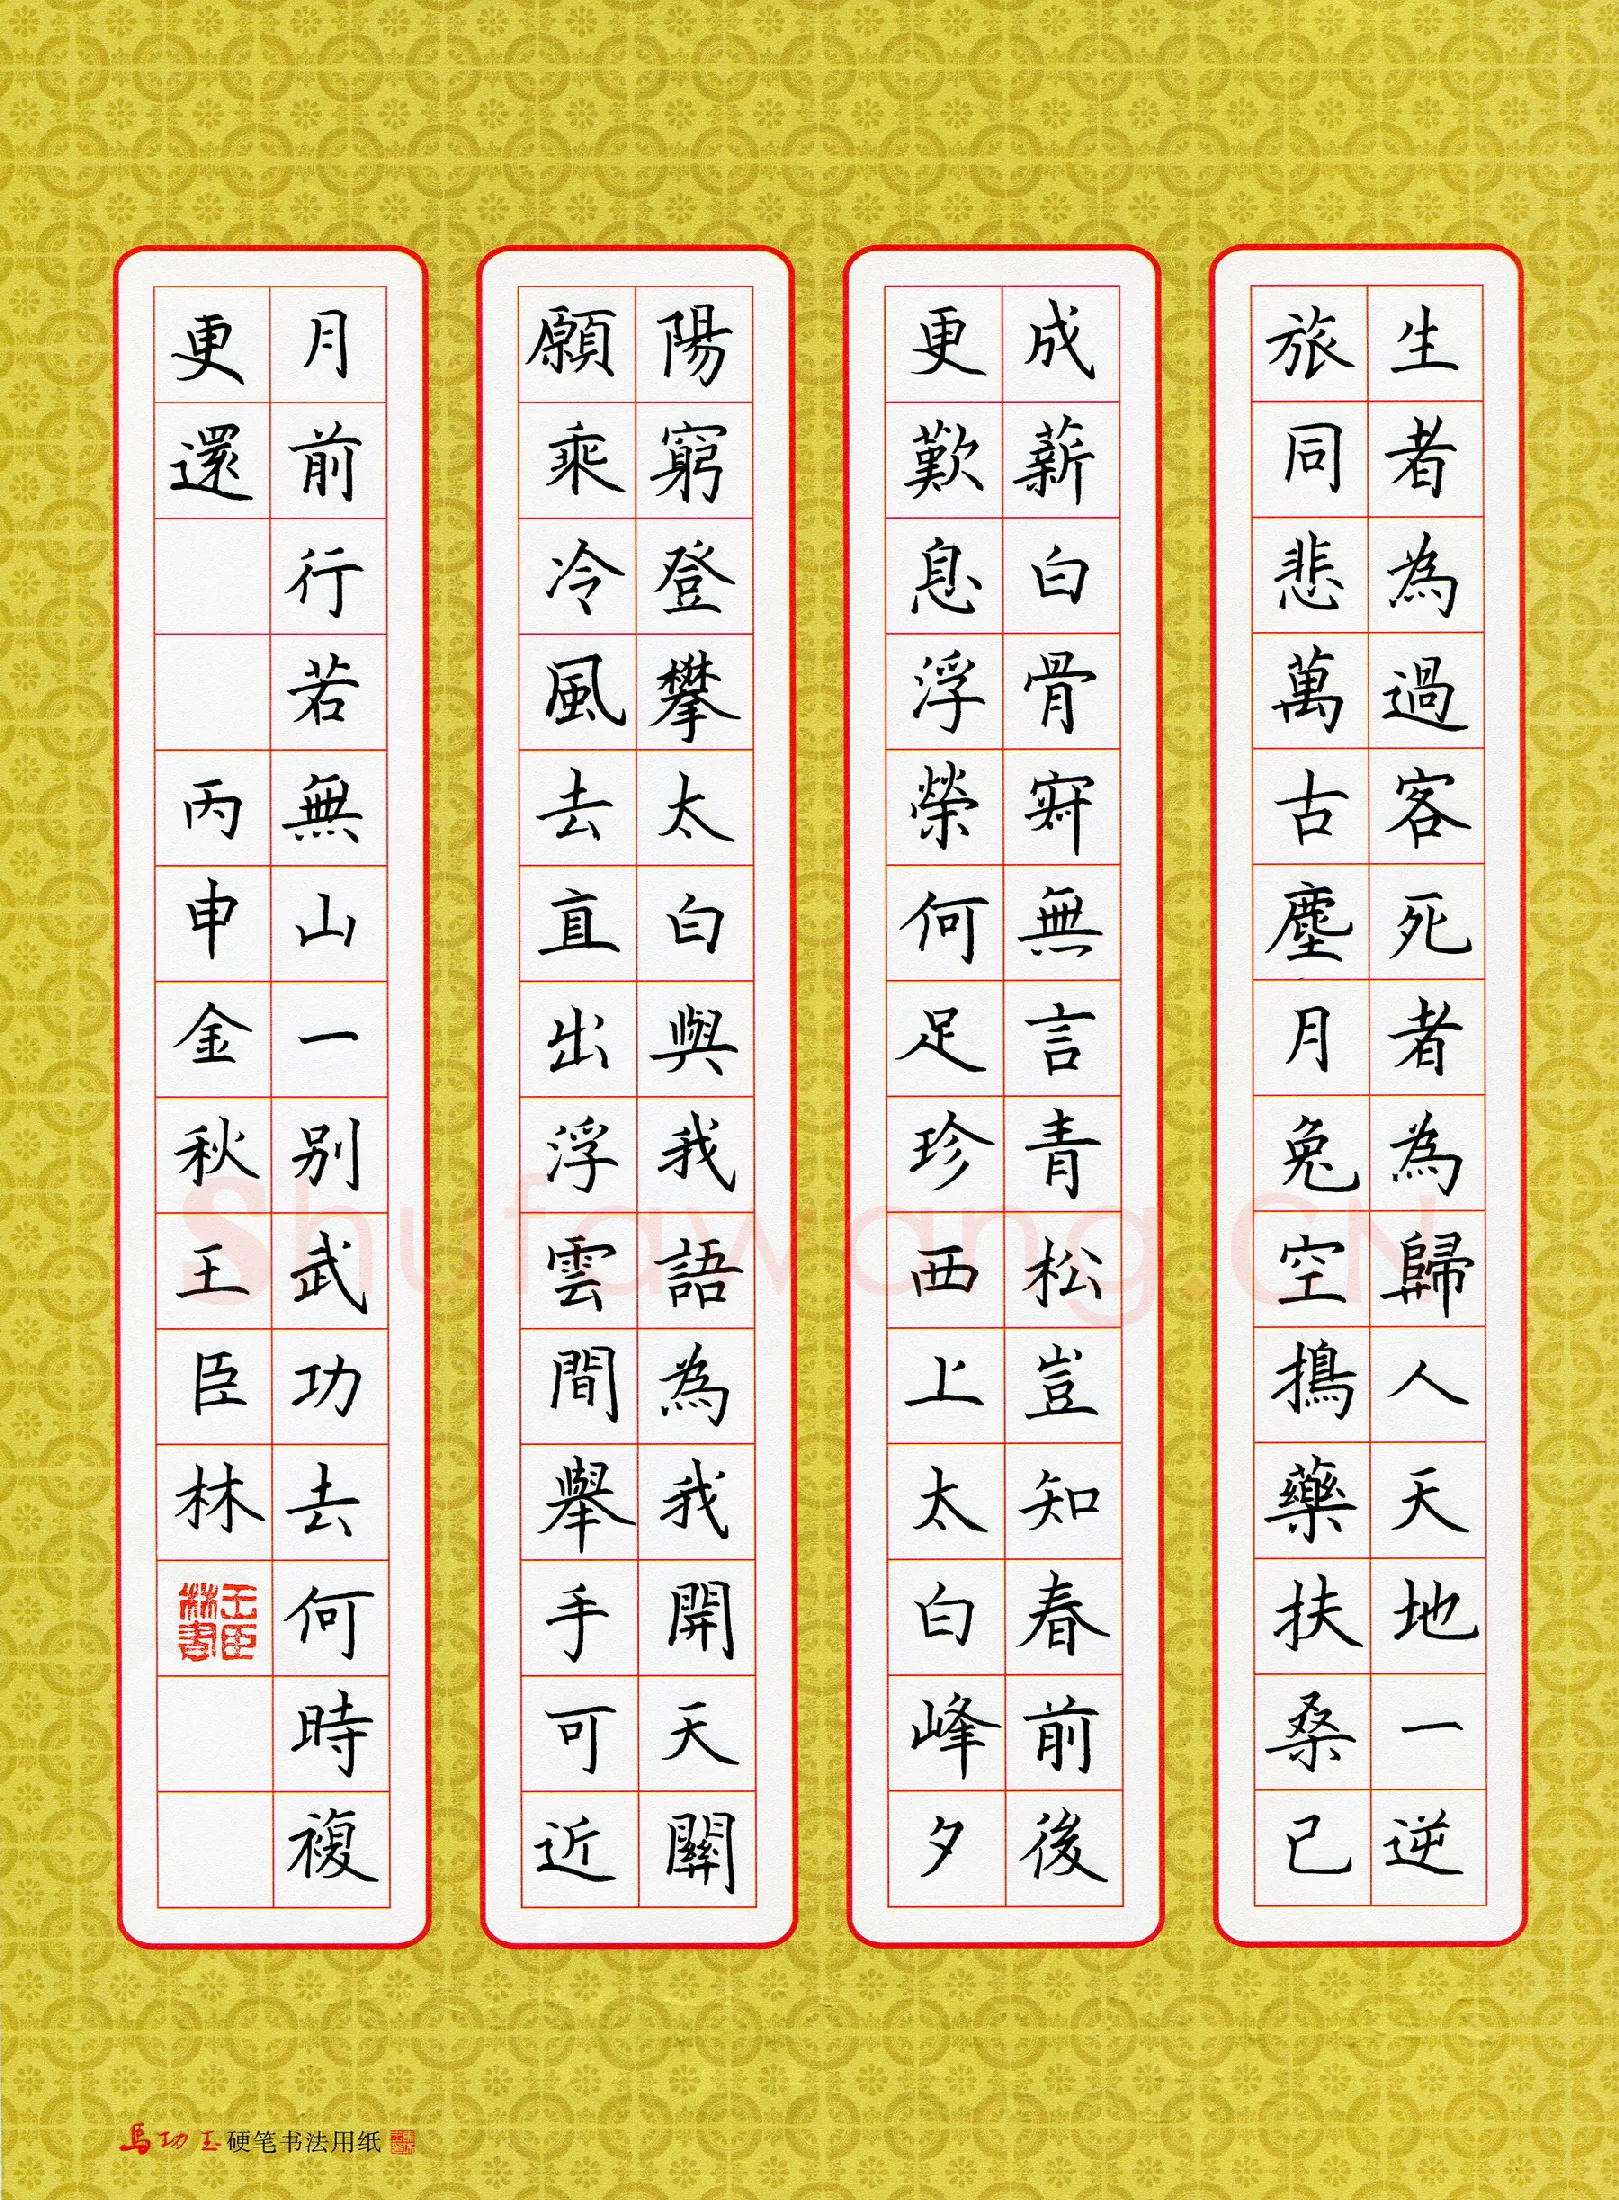 生者為過客死者為歸人天地一逆
旅同悲萬古塵月兔空搗藥扶桑已
成薪白骨寂無言青松豈知春前後
更歎息浮榮何足珍西上太白峰夕
陽窮登攀太白與我語為我開天關
願乘冷風去直出浮雲間舉手可近
月前行若無山一別武功去何時複
更還
丙申金秋王臣林
王臣林書
Shufawang.CN
馬功玉硬笔书法用纸